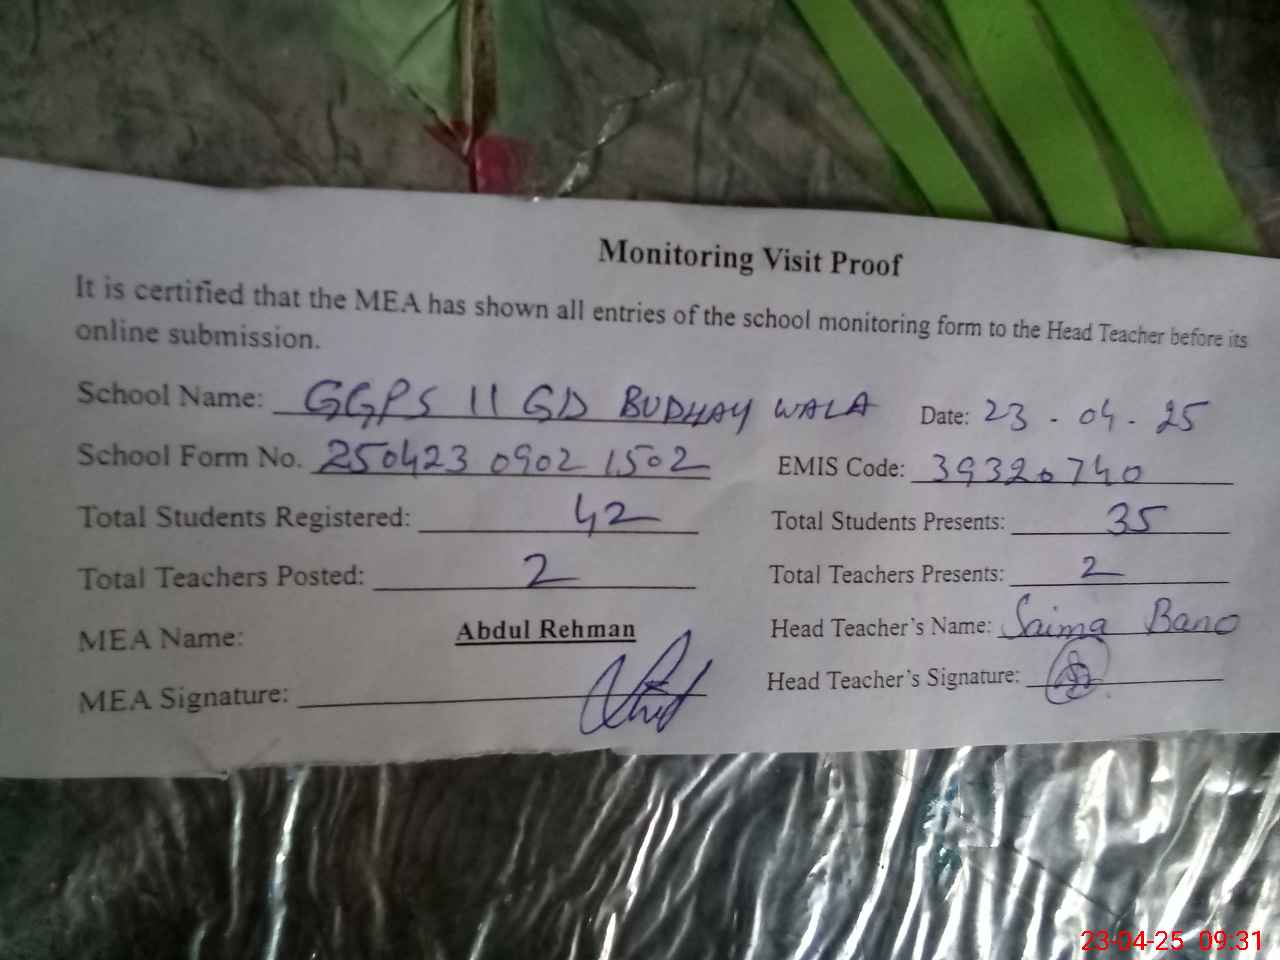 Monitoring Visit Proof
It is certified that the MEA has shown all entries of the school monitoring form to the Head Teacher before its
online submission.
School Name: GGPS 11 GD BUDHAY WALA Date: 23-04-25
School Form No. 250423 0902 1502 EMIS Code: 39320740
Total Students Registered: 42 Total Students Presents: 35
Total Teachers Posted: 2 Total Teachers Presents: 2
MEA Name: Abdul Rehman Head Teacher's Name: Saima Bano
MEA Signature: Head Teacher's Signature:
23-04-25 09:31